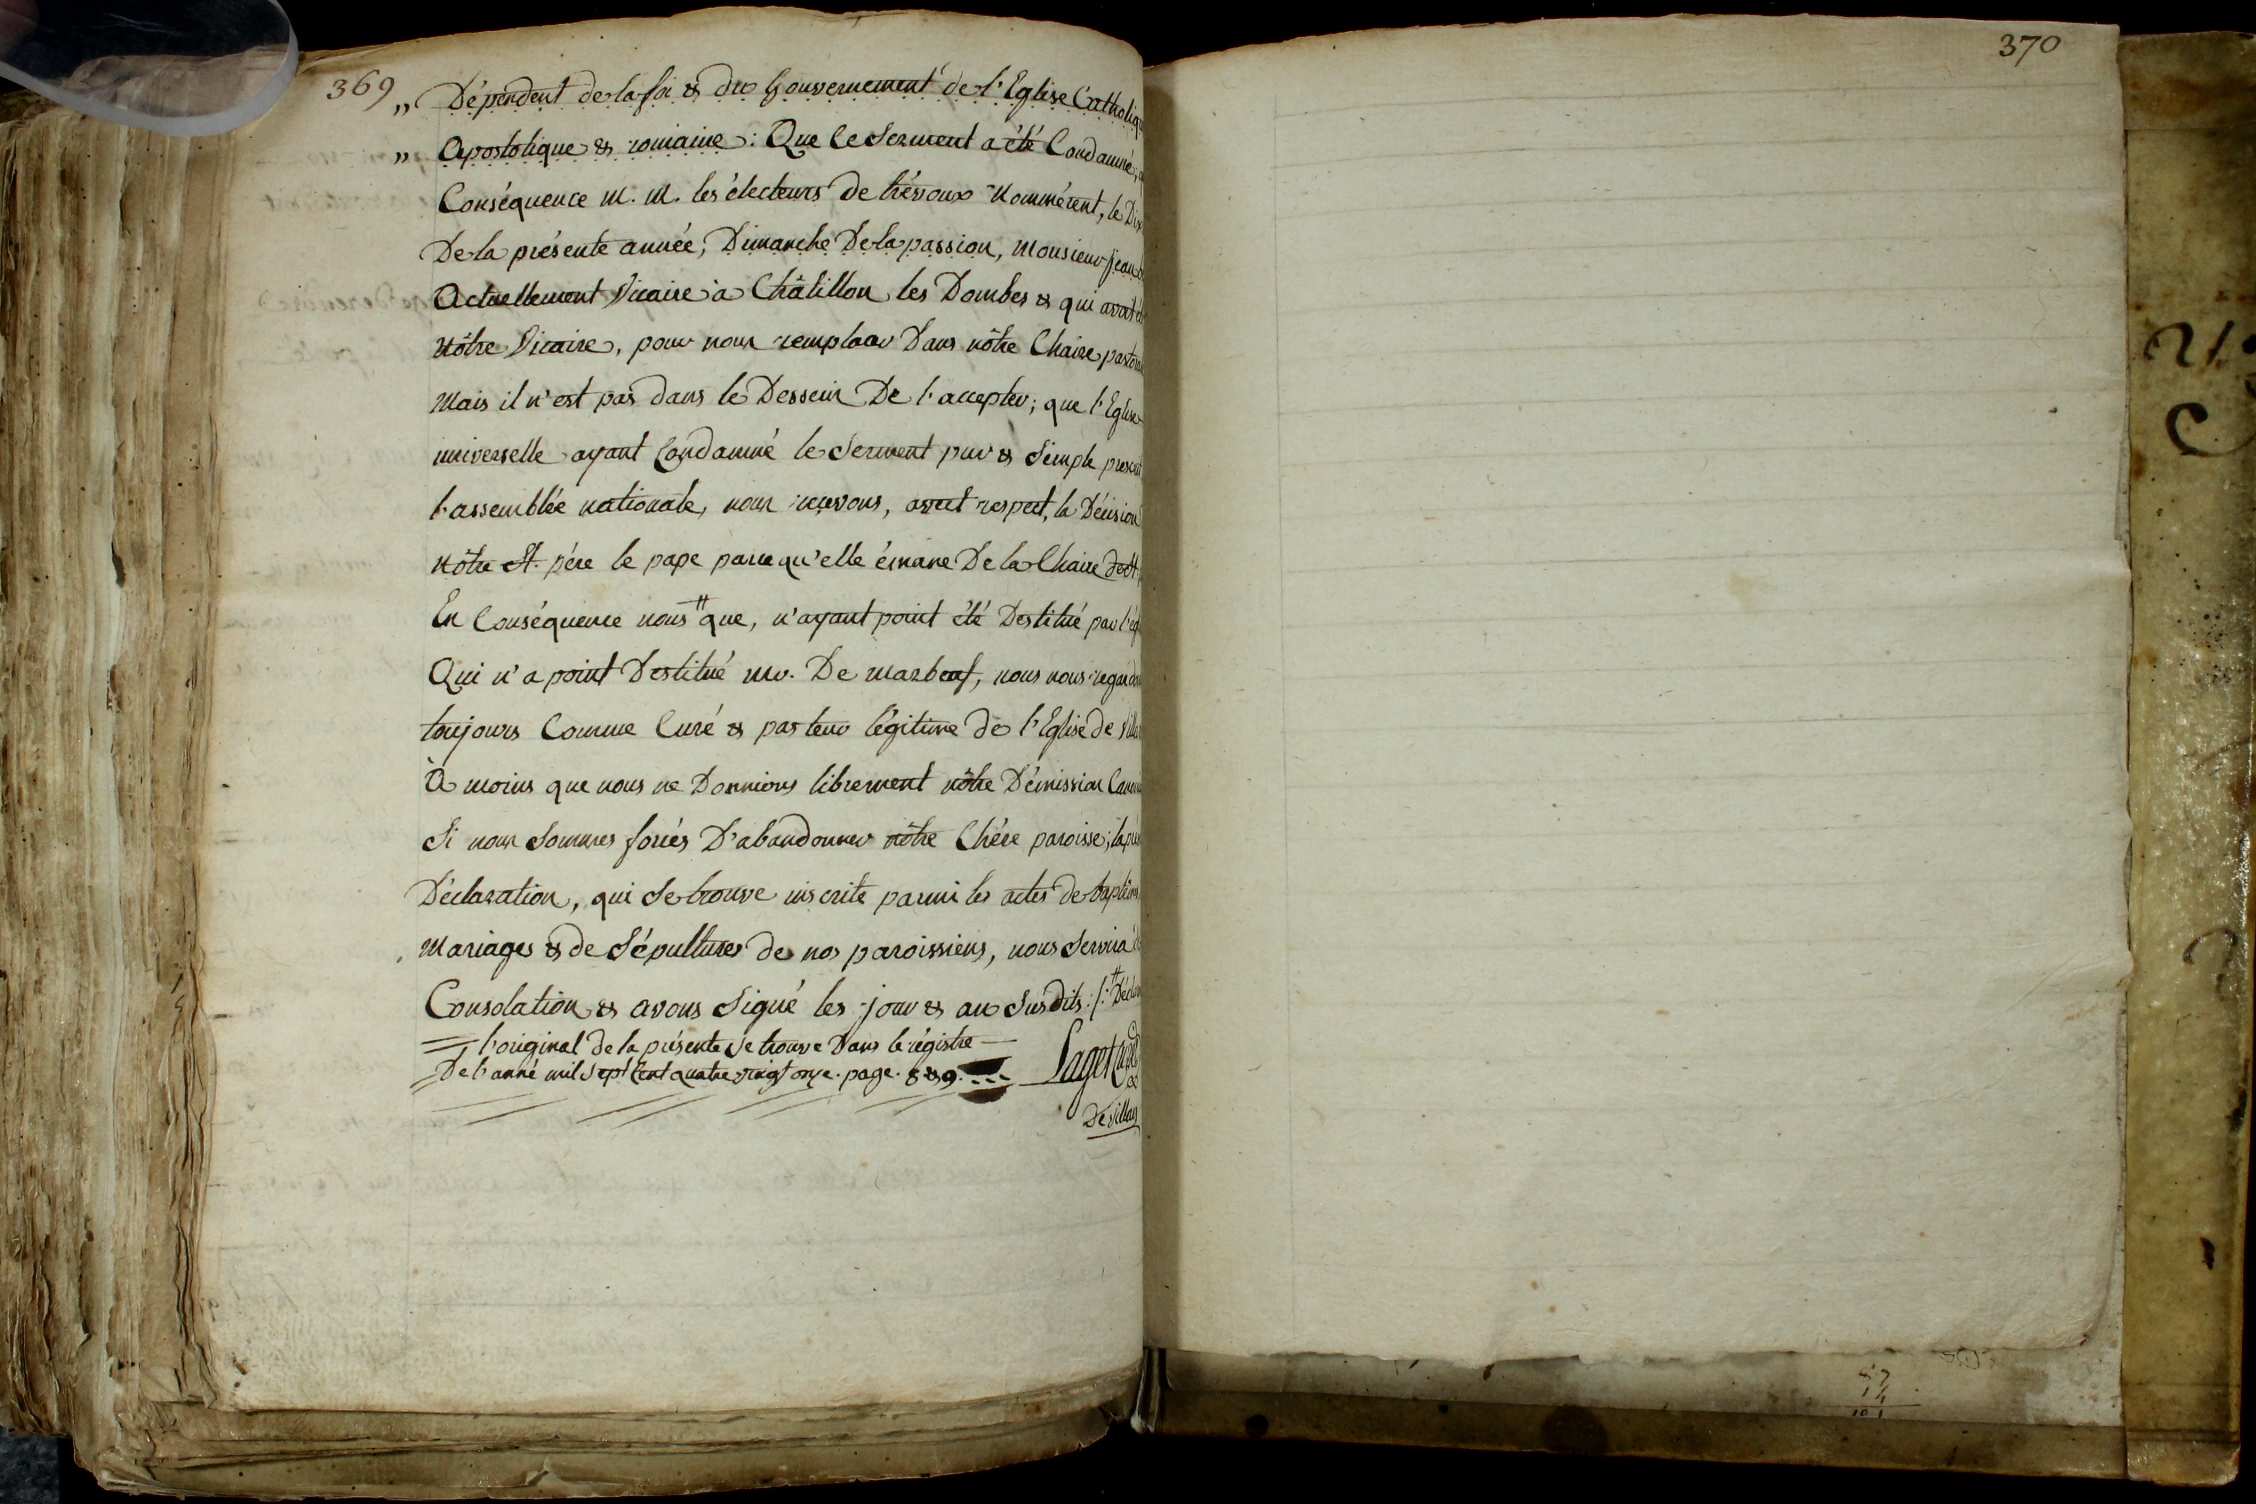 369
„ Dépendent de la foi & du Gouvernement de l'Eglise Catholiq
„ Apostolique & romaine : Que ce Serment a été Condamné;
Conséquence M. M. les électeurs de trévoux Nommérent, le Dix
De la présente année, Dimanche De la passion, Monsieur jean
Actuellement Vicaire à Châtillon les Dombes & qui avait
Nôtre Vicaire, pour nous remplacer Dans nôtre Chaire pastora
Mais il n'est pas dans le Dessein De l'accepter; que l'Eglise
universelle ayant Condamné le Serment pur & Simple prescrit
l'assemblée nationale, nous recevons, avect respect, la Décision
Nôtre St. pére le pape parce qu'elle émane De la Chaire de St.
En Conséquence nous # que, n'ayant point été Destitué par l'ég
Qui n'a point Destitué mr. De marbeuf, nous nous regardo
toujours Comme Curé & pasteur légitime de l'Eglise de Villa
à moins que nous ne Donnions librement nôtre Démission Canon
Si nous Sommes forcés D'abandonner nôtre Chére paroisse; la pré
Déclaration, qui Se trouve inscrite parmi les actes de baptém
Mariages & de Sépultures de nos paroissiens, nous Servira d
Consolation & avons Signé les jour & an Susdits: /: # Décla
= l'original de la présente Se trouve Dans le régistre —
= De l'anné mil Sept Cent quatre vingt onze. page. 8 & 9.
Laget Curé
De Villars
370